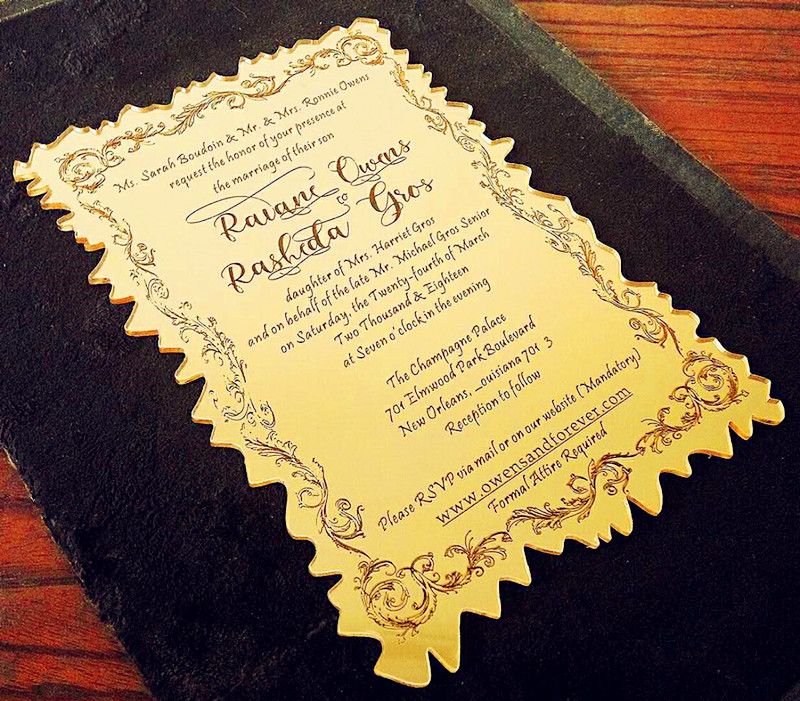 Ms. Sarah Boudoin & Mr. & Mrs. Ronnie Owens
request the honor of your presence at
the marriage of their son
Raiane Owens
to
Rashida Gros
daughter of Mrs. Harriet Gros
and on behalf of the late Mr. Michael Gros Senior
on Saturday, the Twenty-fourth of March
Two Thousand & Eighteen
at Seven o'clock in the evening
The Champagne Palace
701 Elmwood Park Boulevard
New Orleans, _ouisiana 701 3
Reception to follow
Please RSVP via mail or on our website (Mandatory)
www.owensandforever.com
Formal Attire Required